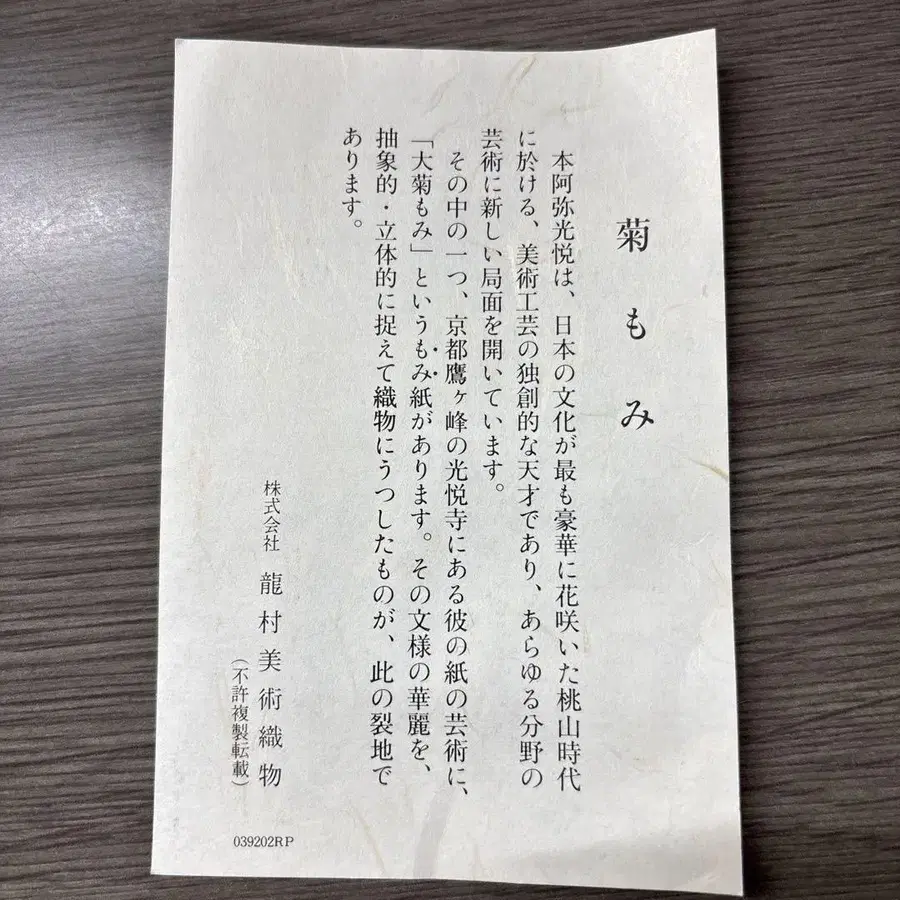 菊もみ
本阿弥光悦は、日本の文化が最も豪華に花咲いた桃山時代
に於ける、美術工芸の独創的な天才であり、あらゆる分野の
芸術に新しい局面を開いています。
その中の一つ、京都鷹ヶ峰の光悦寺にある彼の紙の芸術に、
「大菊もみ」というもみ紙があります。その文様の華麗を、
抽象的・立体的に捉えて織物にうつしたものが、此の裂地で
あります。
株式会社 龍村美術織物
(不許複製転載)
039202RP